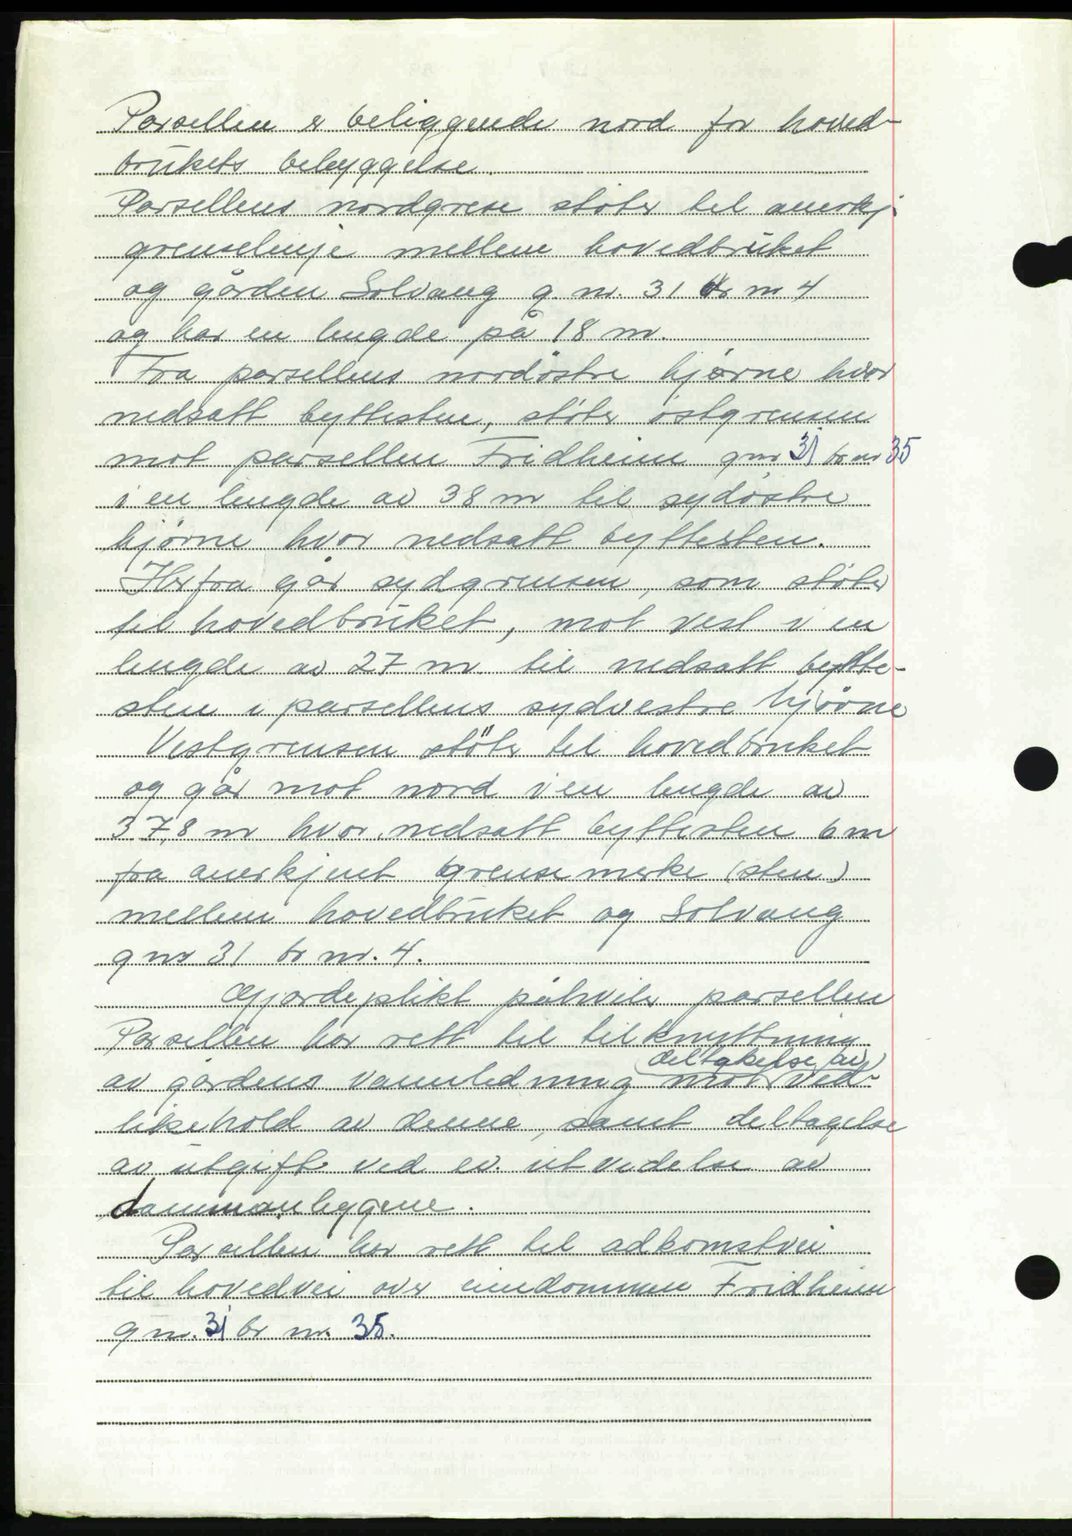 Parsellen er beliggende nord for hoved-
brukets bebyggelse.
Parsellens nordgrese støter til anerkj.
grenselinje mellem hovedbruket
og gården Solvang g. nr. 31 br nr 4
og har en lengde på 18 m.
Fra parsellens nordøstre hjørne hvor
nedsatt byttesten, støter østgrensen
mot parsellen Fridheim gnr 31 br nr 35
i en lengde av 38 m til sydøstre
hjørne hvor nedsatt byttesten.
Herfra går sydgrensen, som støter
til hovedbruket, mot vest i en
lengde av 27 m til nedsatt bytte-
sten i parsellens sydvestre hjørne
Vestgrensen støter til hovedbruket
og går mot nord i en lengde av
37,8 m hvor nedsatt byttesten 6 m
fra anerkjent grensemerke (sten)
mellem hovedbruket og Solvang
gnr 31 br nr. 4.
Gjærdeplikt påhviler parsellen
Parsellen har rett til tilknyttning
deltakelse (av)
av gårdens vannledning mot ved-
likehold av denne, samt deltagelse
av utgift ved ev. utvidelse av
dammanleggene.
Parsellen har rett til adkomstvei
til hovedvei over eiendommen Fridheim
g nr. 31 br nr. 35.